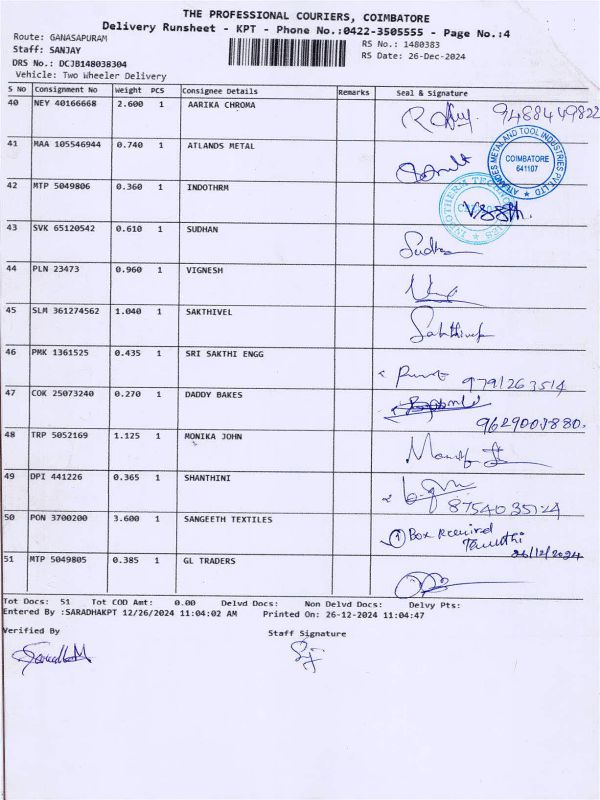 THE PROFESSIONAL COURIERS, COIMBATORE
Delivery Runsheet - KPT - Phone No.:0422-3505555 - Page No.:4
Route: GANASAPURAM
RS No.: 1480383
Staff: SANJAY
RS Date: 26-Dec-2024
DRS No.: DCJB148038304
Vehicle: Two Wheeler Delivery
S No Consignment No Weight PCS Consignee Details Remarks Seal & Signature
40 NEY 40166668 2.600 1 AARIKA CHROMA 9488449822
41 MAA 105546944 0.740 1 ATLANDS METAL
ATLANDES METAL AND TOOL INDUSTRIES PVT LTD
COIMBATORE
641107
42 MTP 5049806 0.360 1 INDOTHRM
43 SVK 65120542 0.610 1 SUDHAN Sudha
44 PLN 23473 0.960 1 VIGNESH
45 SLM 361274562 1.040 1 SAKTHIVEL Sakthivel
46 PMK 1361525 0.435 1 SRI SAKTHI ENGG 9791263514
47 COK 25073240 0.270 1 DADDY BAKES
9629003880.
48 TRP 5052169 1.125 1 MONIKA JOHN
49 DPI 441226 0.365 1 SHANTHINI
8754035124
50 PON 3700200 3.600 1 SANGEETH TEXTILES 1 Box received
26/12/2024
51 MTP 5049805 0.385 1 GL TRADERS
Tot Docs: 51 Tot COD Amt: 0.00 Delvd Docs: Non Delvd Docs: Delvy Pts:
Entered By :SARADHAKPT 12/26/2024 11:04:02 AM Printed On: 26-12-2024 11:04:47
Verified By Staff Signature